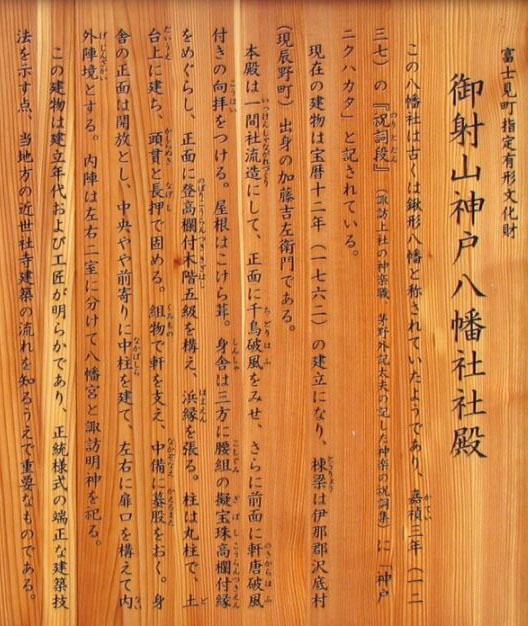 富士見町指定有形文化財
御射山神戸八幡社社殿
この八幡社は古くは鍬形八幡と称されていたようであり、嘉禎三年（一二
三七）の『祝詞段』（諏訪上社の神楽職、茅野外記太夫の記した神楽の祝詞集）に「神戸
ニクハカタ」と記されている。
現在の建物は宝暦十二年（一七六二）の建立になり、棟梁は伊那郡沢底村
（現辰野町）出身の加藤吉左衛門である。
本殿は一間社流造にして、正面に千鳥破風をみせ、さらに前面に軒唐破風
付きの向拝をつける。屋根はこけら葺。身舎は三方に腰組の擬宝珠高欄付縁
をめぐらし、正面に登高欄付木階五級を構え、浜縁を張る。柱は丸柱で、土
台上に建ち、頭貫と長押で固める。組物で軒を支え、中備に蟇股をおく。身
舎の正面は開放とし、中央やや前寄りに中柱を建て、左右に扉口を構えて内
外陣境とする。内陣は左右二室に分けて八幡宮と諏訪明神を祀る。
この建物は建立年代および工匠が明らかであり、正統様式の端正な建築技
法を示す点、当地方の近世社寺建築の流れを知るうえで重要なものである。